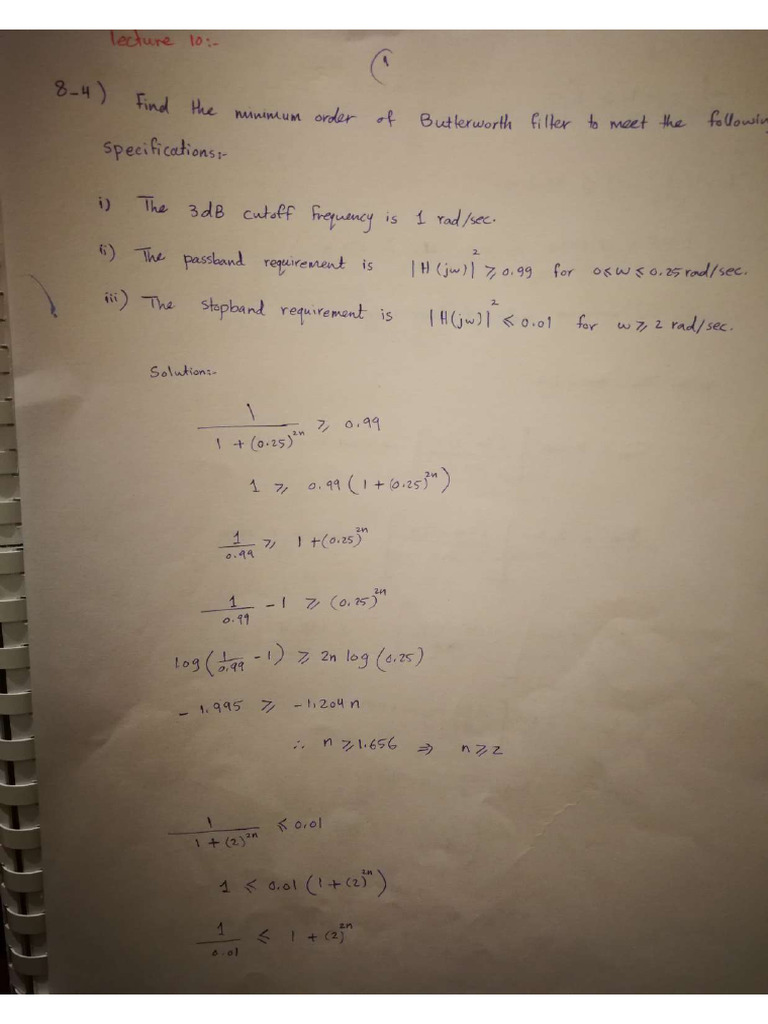 lecture 10:-
(1
8-4) Find the minimum order of Butterworth filter to meet the following
specifications:-
i) The 3dB cutoff frequency is 1 rad/sec.
ii) The passband requirement is |H(jw)|² ⩾ 0.99 for 0⩽w⩽0.25 rad/sec.
iii) The stopband requirement is |H(jw)|² ⩽ 0.01 for w⩾2 rad/sec.
Solution:-
1/(1+(0.25)^2n) ⩾ 0.99
1 ⩾ 0.99(1+(0.25)^2n)
1/0.99 ⩾ 1+(0.25)^2n
1/0.99 -1 ⩾ (0.25)^2n
log(1/0.99 -1) ⩾ 2n log(0.25)
-1.995 ⩾ -1.204n
∴ n⩾1.656 ⇒ n⩾2
1/(1+(2)^2n) ⩽ 0.01
1 ⩽ 0.01(1+(2)^2n)
1/0.01 ⩽ 1+(2)^2n